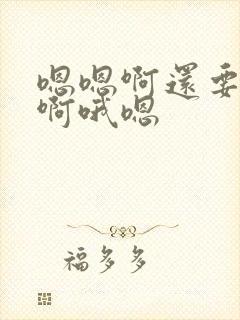 嗯嗯啊還要
啊哦嗯
福多多